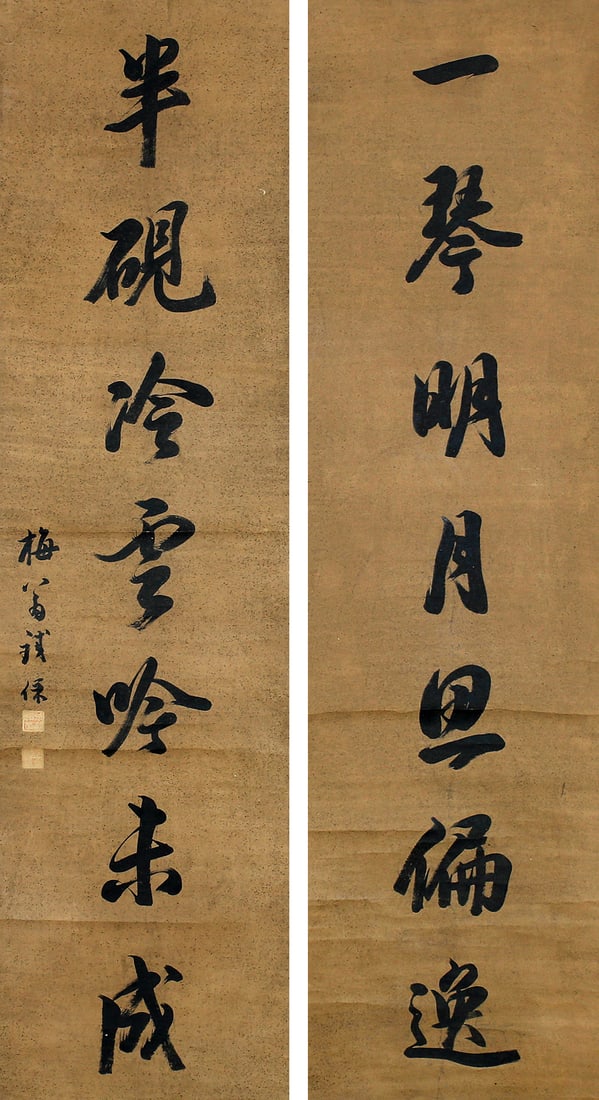 一琴明月思偏逸
半硯冷雲吟未成
梅翁鐵保